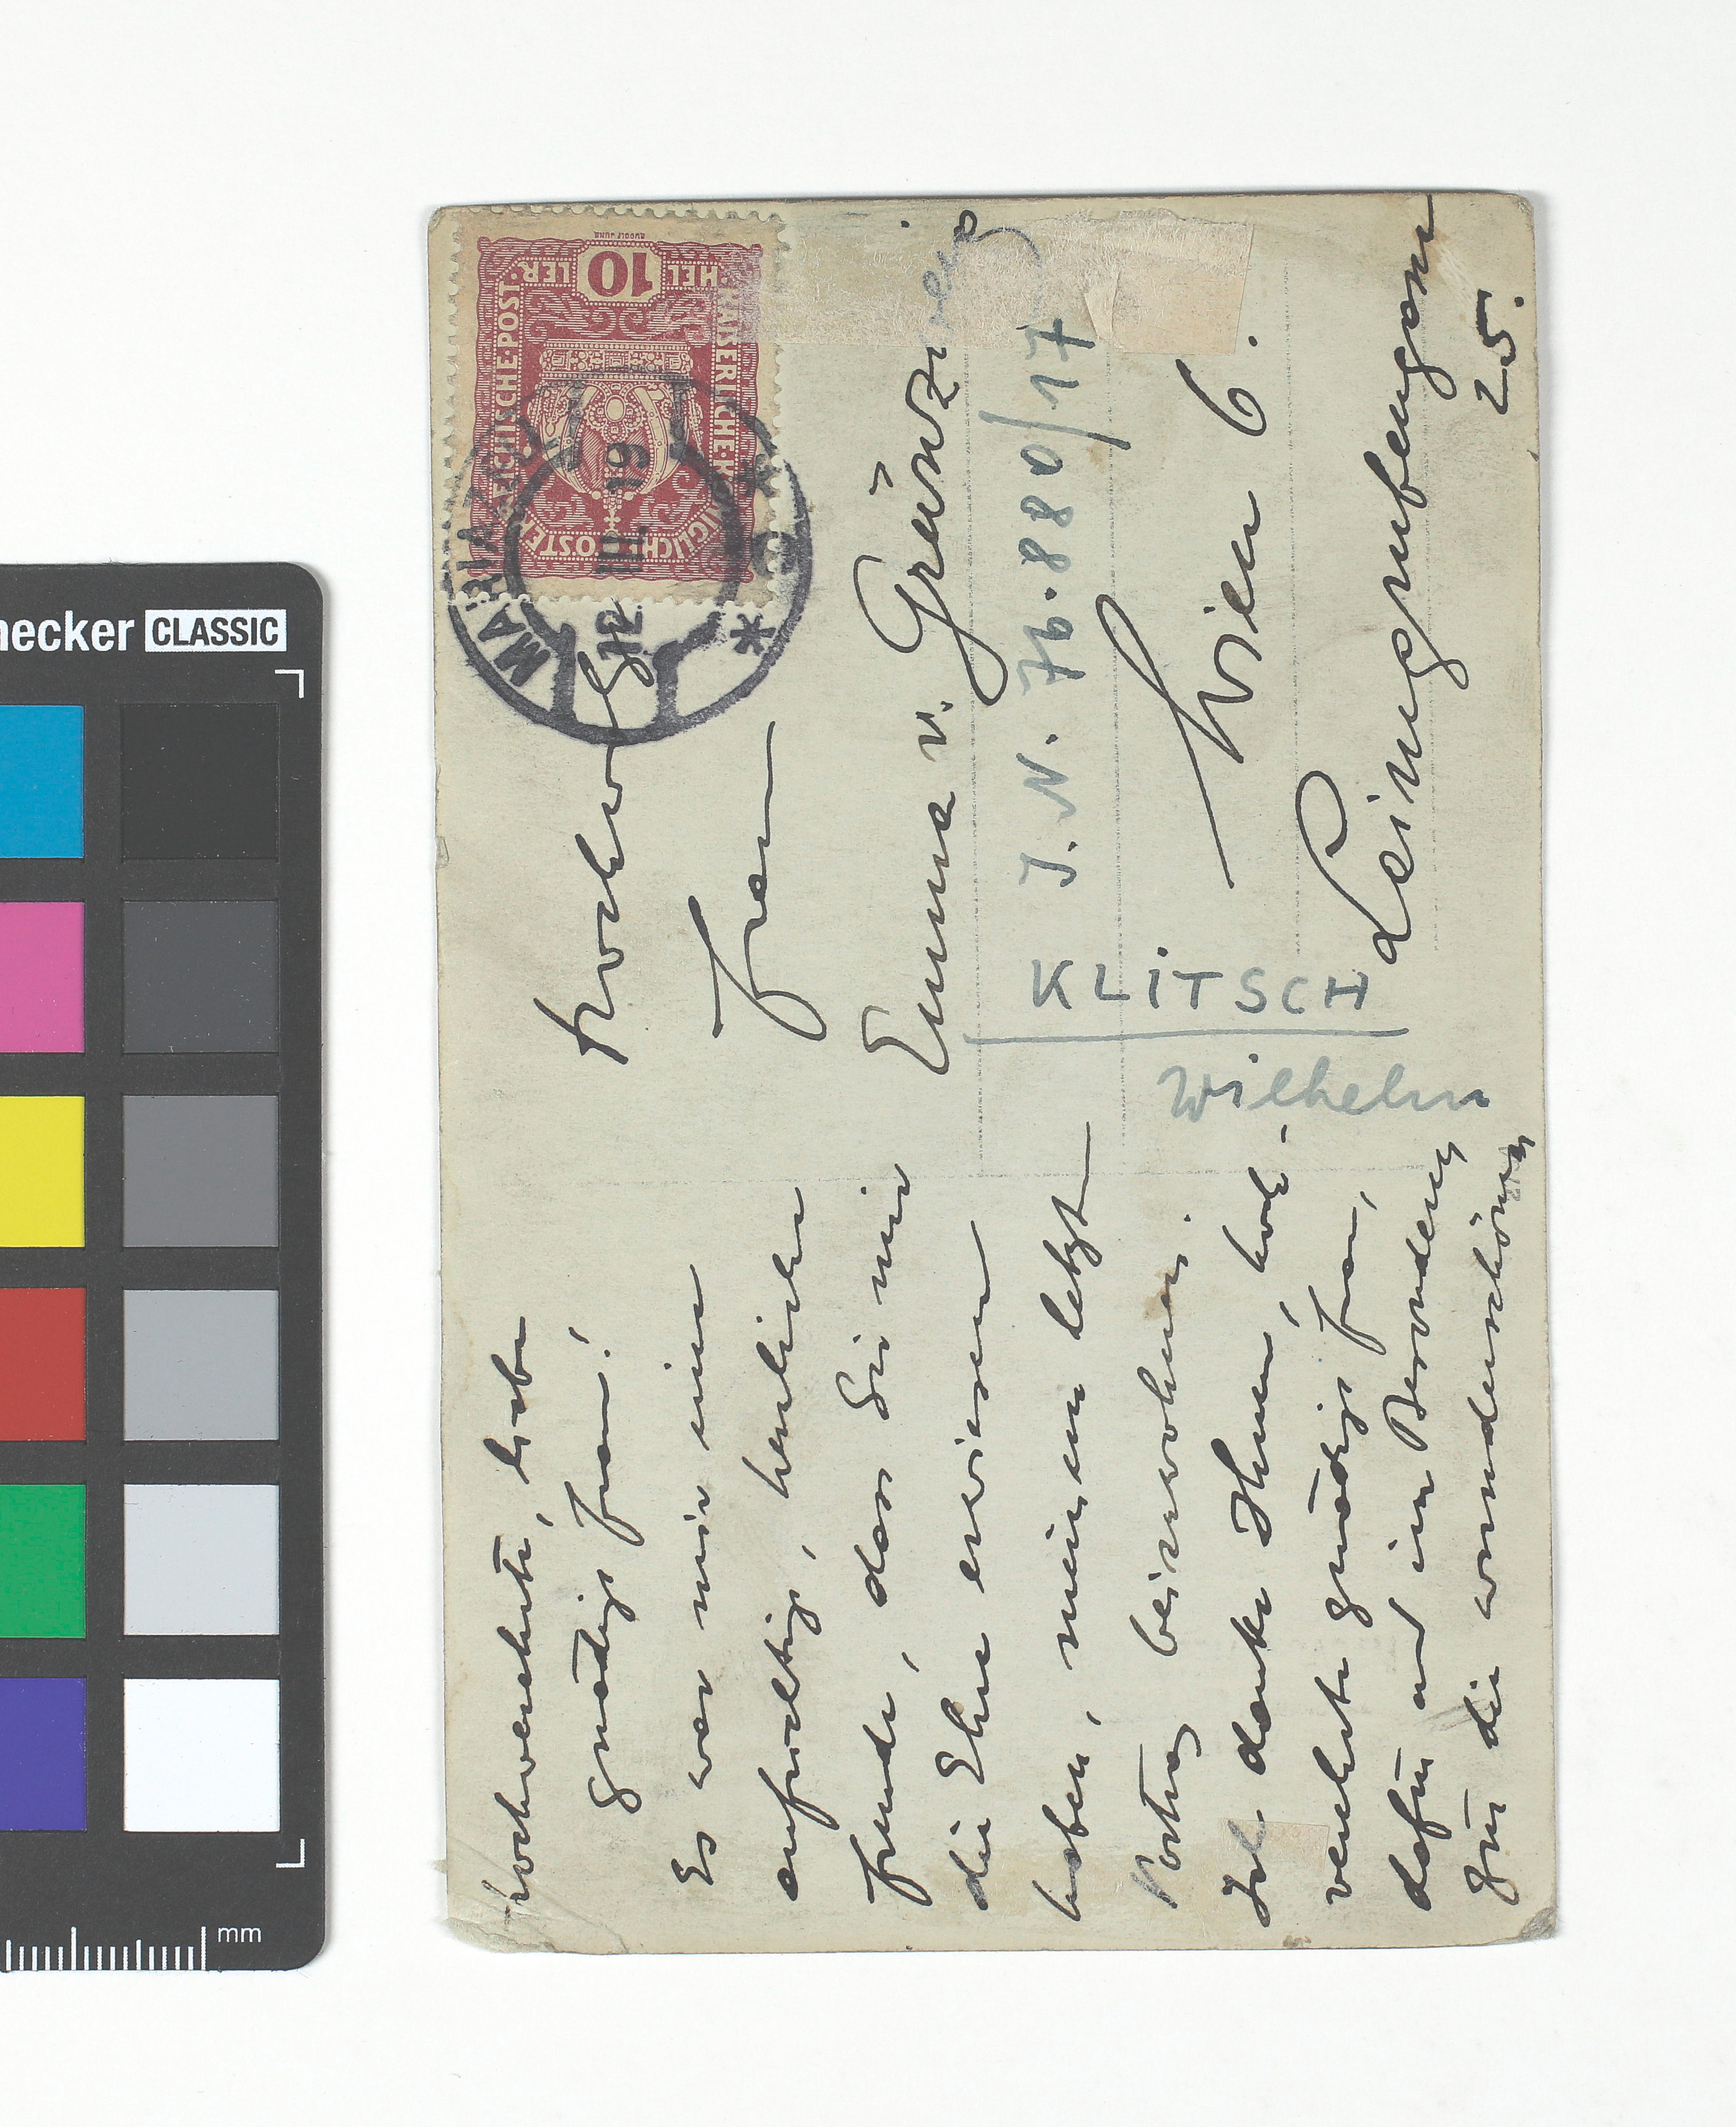 Hochverehrte, liebe
gnädige Frau!
Es war mir eine
aufrichtige, herzliche
Freude, dass Sie mir
die Ehre erwiesen
haben, meinem letzten
Vortrag beizuwohnen.
Ich danke Ihnen, hoch-
verehrte gnädige Frau,
dafür und im Besonderen
für die wunderschönen
Hochwolg.
Frau
Emma v. Grünzweig
Wien 6.
Leimgrubengasse
25.
J. N. 76.880/17
KLITSCH
Wilhelm
MARIAZELL
12 III. 19
KAISERLICHE KÖNIGLICHE ÖSTERREICHISCHE POST.
10
HELLER
RUDOLF JUNK
necker CLASSIC
mm